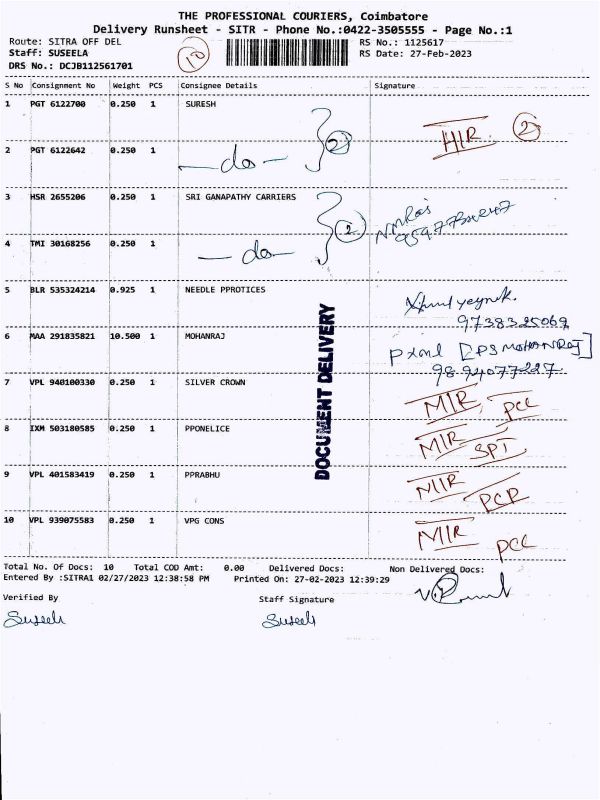 THE PROFESSIONAL COURIERS, Coimbatore
Delivery Runsheet - SITR - Phone No.:0422-3505555 - Page No.:1
Route: SITRA OFF DEL
Staff: SUSEELA
DRS No.: DCJB112561701
10
RS No.: 1125617
RS Date: 27-Feb-2023
S No Consignment No Weight PCS Consignee Details Signature
1 PGT 6122700 0.250 1 SURESH
HIR 2
2 PGT 6122642 0.250 1 -do- 2
3 HSR 2655206 0.250 1 SRI GANAPATHY CARRIERS
4 TMI 30168256 0.250 1 -do- 2
5 BLR 535324214 0.925 1 NEEDLE PPROTICES
9738325069
6 MAA 291835821 10.500 1 MOHANRAJ [PS MOHANRAJ]
9894077227
7 VPL 940100330 0.250 1 SILVER CROWN MIR PCC
8 IXM 503180585 0.250 1 PPONELICE MIR SPT
9 VPL 401583419 0.250 1 PPRABHU MIR PCP
10 VPL 939075583 0.250 1 VPG CONS MIR PCC
DOCUMENT DELIVERY
Total No. Of Docs: 10 Total COD Amt: 0.00 Delivered Docs: Non Delivered Docs:
Entered By :SITRA1 02/27/2023 12:38:58 PM Printed On: 27-02-2023 12:39:29
Verified By Staff Signature
Suseela Suseela